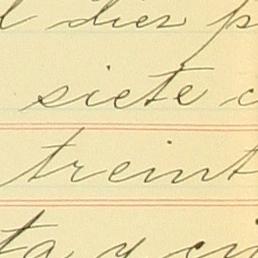 l diez p
siete c
treint
ta y ci